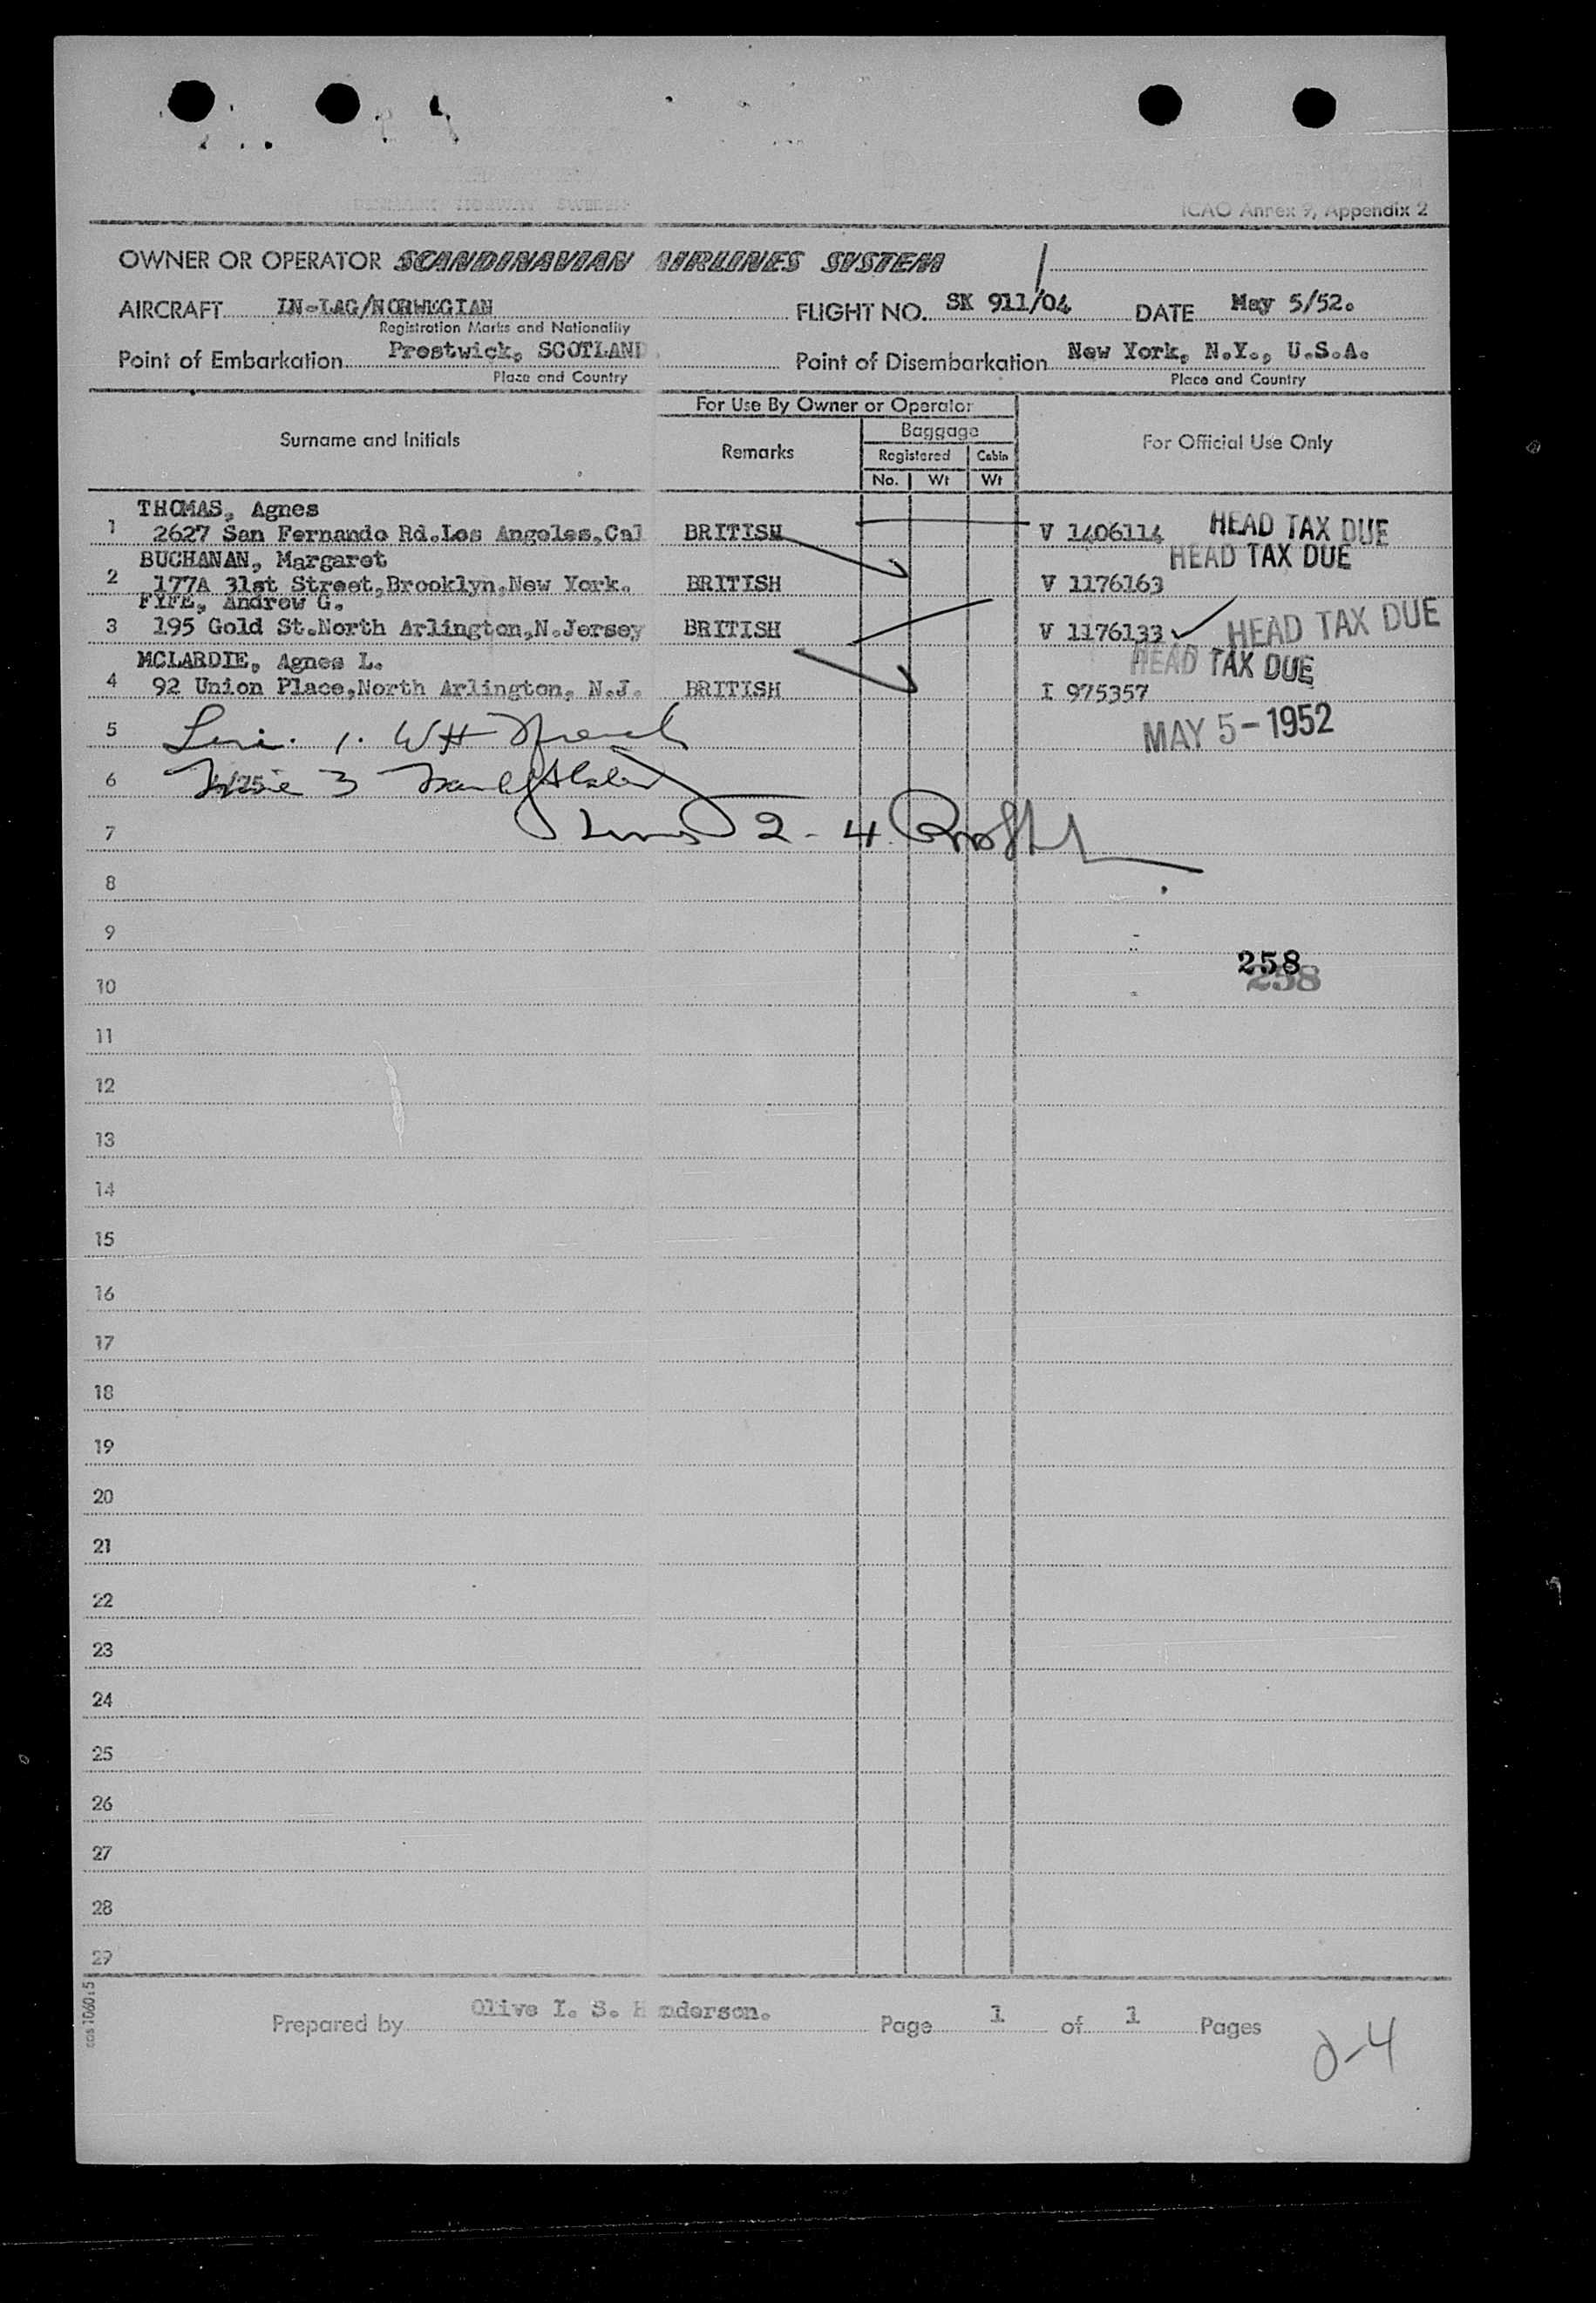 ICAO Annex 9, Appendix 2
OWNER OR OPERATOR SCANDINAVIAN AIRLINES SYSTEM
AIRCRAFT LN-LAG/NORWEGIAN FLIGHT NO. SK 911/04 DATE May 5/52.
Registration Marks and Nationality
Point of Embarkation Prestwick, SCOTLAND. Point of Disembarkation New York, N.Y., U.S.A.
Place and Country Place and Country
Surname and Initials For Use By Owner or Operator For Official Use Only
Remarks Baggage
Registered Cabin
No. Wt Wt
THOMAS, Agnes
1 2627 San Fernando Rd.Los Angeles,Cal BRITISH V 1406114 HEAD TAX DUE
BUCHANAN, Margaret HEAD TAX DUE
2 177A 31st Street,Brooklyn,New York. BRITISH V 1176163
FYFE, Andrew G.
3 195 Gold St.North Arlington,N.Jersey BRITISH V 1176133 HEAD TAX DUE
MCLARDIE, Agnes L. HEAD TAX DUE
4 92 Union Place,North Arlington, N.J. BRITISH I 975357
5 1. WH MAY 5-1952
6 3
7 2-4
8
9
258
258
10
11
12
13
14
15
16
17
18
19
20
21
22
23
24
25
26
27
28
29
Prepared by Olive I. S. Henderson. Page 1 of 1 Pages